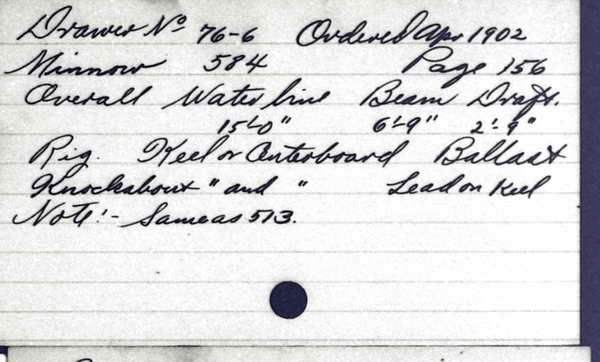 Drawer No 76-6 Ordered Apr 1902
Minnow 584 Page 156
Overall Water line Beam Draft.
15'-0" 6'-9" 2'-9"
Rig. Keel or Centerboard Ballast
Knockabout " and " Lead on Keel
Note:- Same as 513.